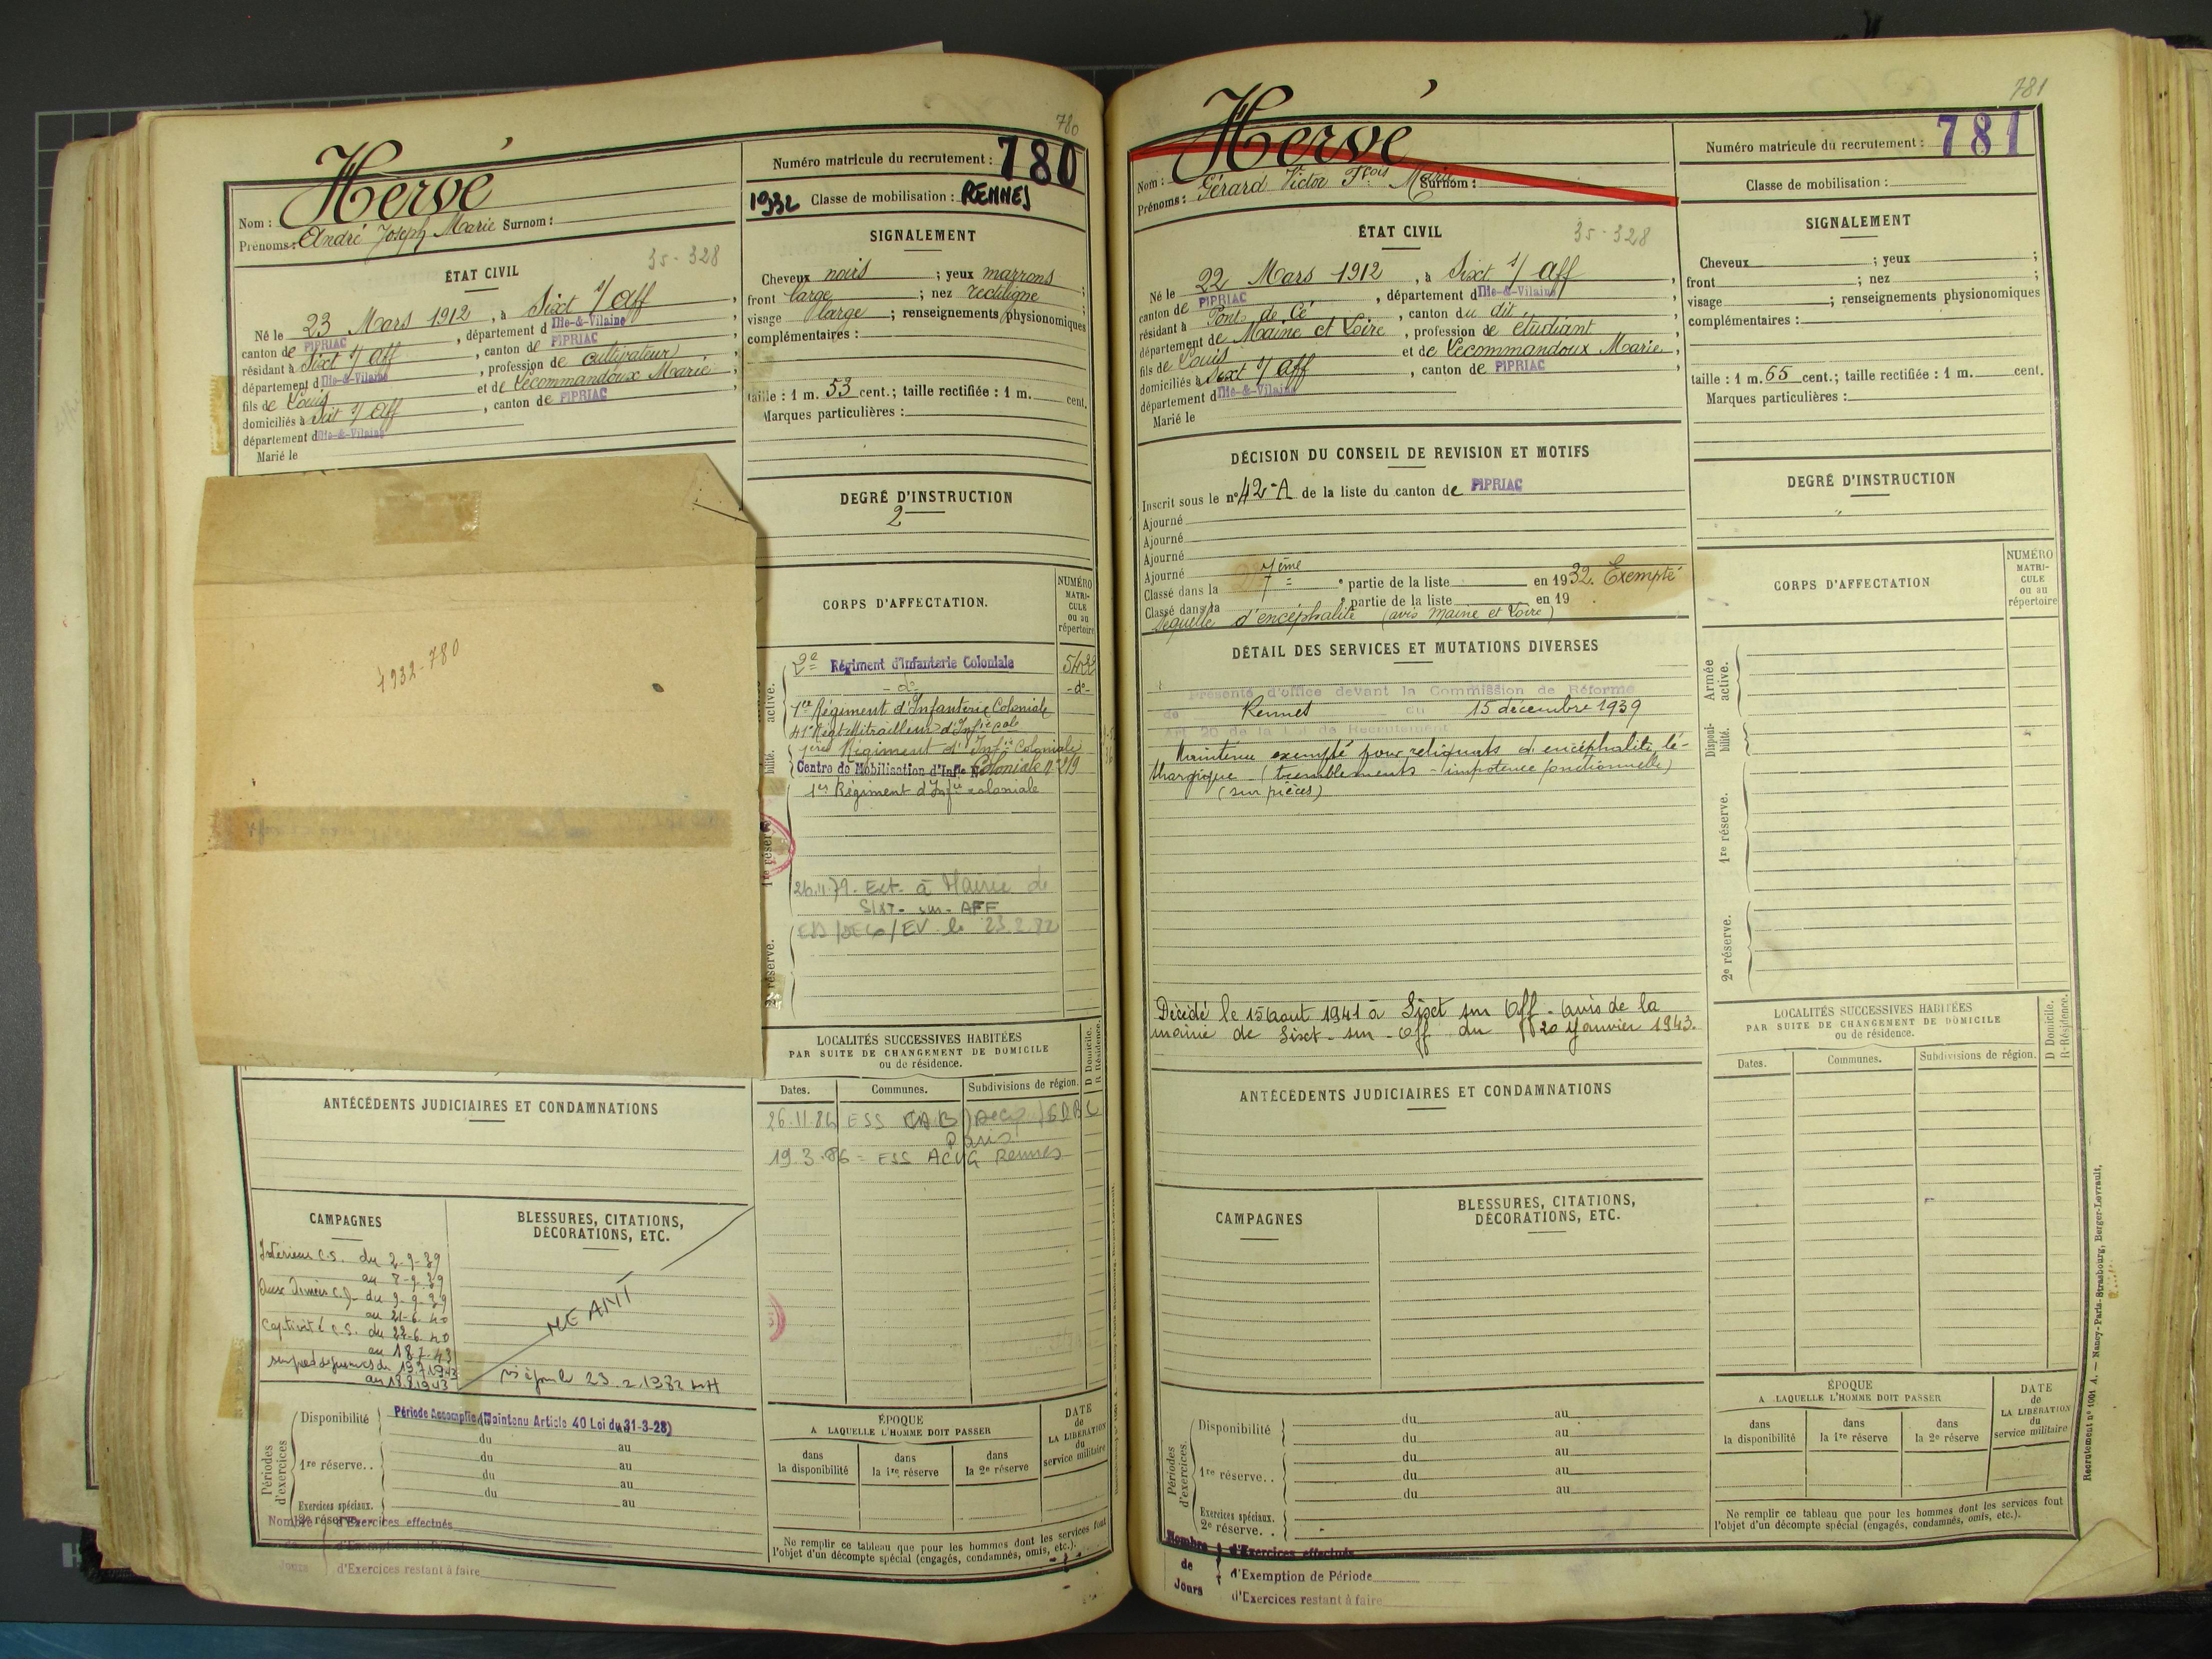 780
Hervé
Nom :
Prénoms : André Joseph Marie Surnom :
35-328
ÉTAT CIVIL
Né le 23 Mars 1912, à Sixt s/ Aff,
canton de PIPRIAC, département d Ille-&-Vilaine,
résidant à Sixt s/ Aff, canton de PIPRIAC,
département d Ille-&-Vilaine, profession de cultivateur,
fils de Louis et de Lecommandoux Marie,
domiciliés à Sixt s/ Aff, canton de PIPRIAC,
département d Ille-&-Vilaine
Marié le
1932-780
Numéro matricule du recrutement : 780
1932 Classe de mobilisation : RENNES
SIGNALEMENT
Cheveux noirs ; yeux marrons ;
front large ; nez rectiligne ;
visage large ; renseignements physionomiques
complémentaires :
taille : 1 m. 53 cent.; taille rectifiée : 1 m. cent.
Marques particulières :
DEGRÉ D'INSTRUCTION
2
CORPS D'AFFECTATION.
NUMÉRO
MATRI-
CULE
ou au
répertoire
active.
bilité.
1re réserve
2e réserve.
2e Régiment d'Infanterie Coloniale
- do -
- do -
1er Régiment d'Infanterie Coloniale
41e Régt Mitrailleurs d'Infie cole
1er Régiment d'Infie Coloniale
Centre de Mobilisation d'Infie Coloniale n° 219
1er Régiment d'Infie coloniale
26.11.79. Ext. à Mairie de
SIXT - sur - AFF
le 23.2.82
LOCALITÉS SUCCESSIVES HABITÉES
PAR SUITE DE CHANGEMENT DE DOMICILE
ou de résidence.
D Domicile.
R Résidence.
Dates. Communes. Subdivisions de région.
26.11.84 ESS
Paris
19.3.86 = ESS ACVG Rennes
ANTÉCÉDENTS JUDICIAIRES ET CONDAMNATIONS
CAMPAGNES
Intérieur C.S. du 2-9-39
au 8-9-39
Aux Armées C.D. du 9-9-39
au 21-6-40
Captivité C.S. du 22-6-40
au 18.7.43
du 19.7.1943
au 18.8.1943
BLESSURES, CITATIONS,
DÉCORATIONS, ETC.
NEANT
mis à jour le 23.2.1982
Périodes
d'exercices
Disponibilité Période Accomplie (Maintenu Article 40 Loi du 31-3-28)
du au
1re réserve. . du au
du au
du au
Exercices spéciaux.
2e réserve. .
Nombre d'Exercices effectués
d'Exemption de Période
Jours d'Exercices restant à faire
ÉPOQUE
A LAQUELLE L'HOMME DOIT PASSER
DATE
de
LA LIBÉRATION
du
service militaire
dans
la disponibilité
dans
la 1re réserve
dans
la 2e réserve
Ne remplir ce tableau que pour les hommes dont les services font
l'objet d'un décompte spécial (engagés, condamnés, omis, etc.).
781
Hervé
Nom :
Prénoms : Gérard Victor Fçois Marie Surnom :
ÉTAT CIVIL
35-328
Né le 22 Mars 1912, à Sixt s/ Aff,
canton de PIPRIAC, département d Ille-&-Vilaine,
résidant à Pont de Cé, canton du dit,
département de Maine et Loire, profession de étudiant,
fils de Louis et de Lecommandoux Marie,
domiciliés à Sixt s/ Aff, canton de PIPRIAC,
département d Ille-&-Vilaine
Marié le
DÉCISION DU CONSEIL DE REVISION ET MOTIFS
Inscrit sous le n° 42-A de la liste du canton de PIPRIAC
Ajourné
Ajourné
Ajourné
Ajourné
Classé dans la 7ème partie de la liste en 1932. Exempté
Classé dans la partie de la liste en 19
Sequelle d'encéphalite (avis Maine et Loire)
DÉTAIL DES SERVICES ET MUTATIONS DIVERSES
Présenté d'office devant la Commission de Réforme
de Rennes du 15 décembre 1939
Art. 20 de la Loi de Recrutement
Maintenu exempté pour reliquats d'encéphalite lé-
thargique (tremblements - impotence fonctionnelle)
(sur pièces)
Décédé le 15 Aout 1941 à Sixt sur Aff - avis de la
mairie de Sixt - sur - Aff du 20 Janvier 1943.
ANTÉCÉDENTS JUDICIAIRES ET CONDAMNATIONS
CAMPAGNES
BLESSURES, CITATIONS,
DÉCORATIONS, ETC.
Périodes
d'exercices
Disponibilité du au
du au
1re réserve. . du au
du au
du au
Exercices spéciaux.
2e réserve. .
Nombre d'Exercices effectués
de d'Exemption de Période
Jours d'Exercices restant à faire
Numéro matricule du recrutement : 781
Classe de mobilisation :
SIGNALEMENT
Cheveux ; yeux ;
front ; nez ;
visage ; renseignements physionomiques
complémentaires :
taille : 1 m. 65 cent.; taille rectifiée : 1 m. cent.
Marques particulières :
DEGRÉ D'INSTRUCTION
CORPS D'AFFECTATION
NUMÉRO
MATRI-
CULE
ou au
répertoire
Armée
active.
Disponi-
bilité.
1re réserve.
2e réserve.
LOCALITÉS SUCCESSIVES HABITÉES
PAR SUITE DE CHANGEMENT DE DOMICILE
ou de résidence.
D Domicile.
R-Résidence.
Dates. Communes. Subdivisions de région.
ÉPOQUE
A LAQUELLE L'HOMME DOIT PASSER
DATE
de
LA LIBÉRATION
du
service militaire
dans
la disponibilité
dans
la 1re réserve
dans
la 2e réserve
Ne remplir ce tableau que pour les hommes dont les services font
l'objet d'un décompte spécial (engagés, condamnés, omis, etc.).
Recrutement n° 1001 A. — Nancy-Paris-Strasbourg, Berger-Levrault,